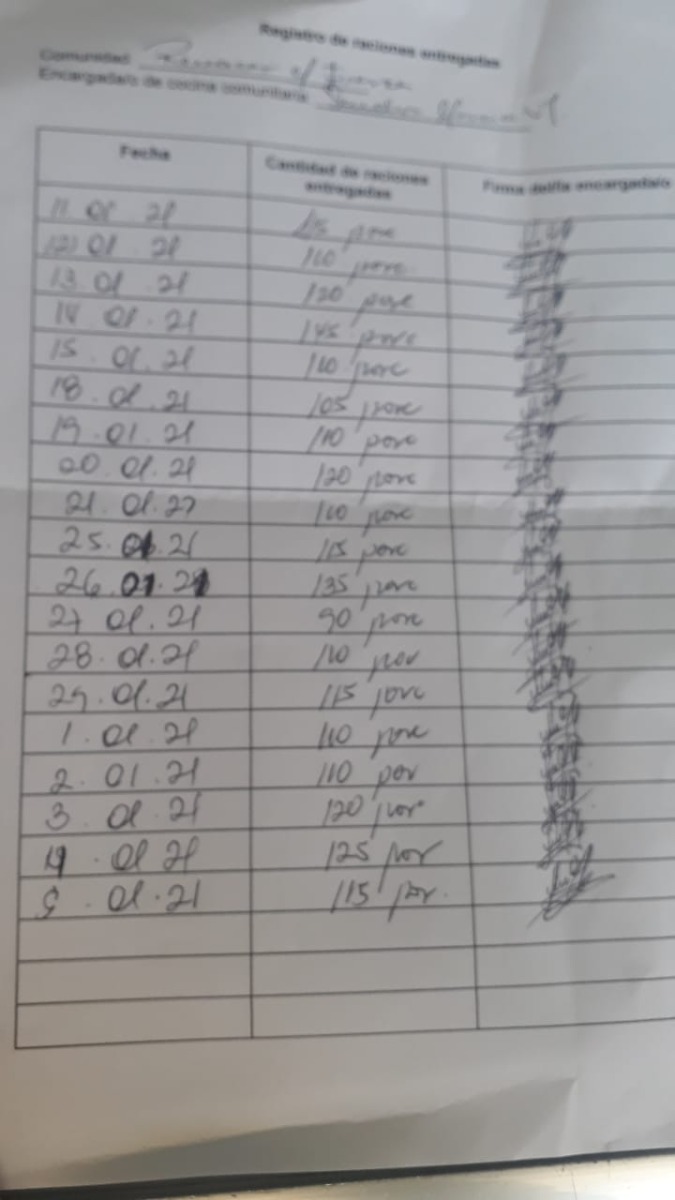 Registro de raciones entregadas
Comunidad:
Encargada/o de cocina comunitaria:
Fecha Cantidad de raciones entregadas Firma del/la encargada/o
11.01.21 115 porc
12.01.21 110 porc
13.01.21 120 porc
14.01.21 145 porc
15.01.21 110 porc
18.01.21 105 porc
19.01.21 110 porc
20.01.21 120 porc
21.01.21 110 porc
25.01.21 115 porc
26.01.21 135 porc
27 01.21 90 porc
28.01.21 110 por
29.01.21 115 porc
1.01.21 110 porc
2.01.21 110 por
3.01.21 120 por
4.01 21 125 por
5.01.21 115 por.